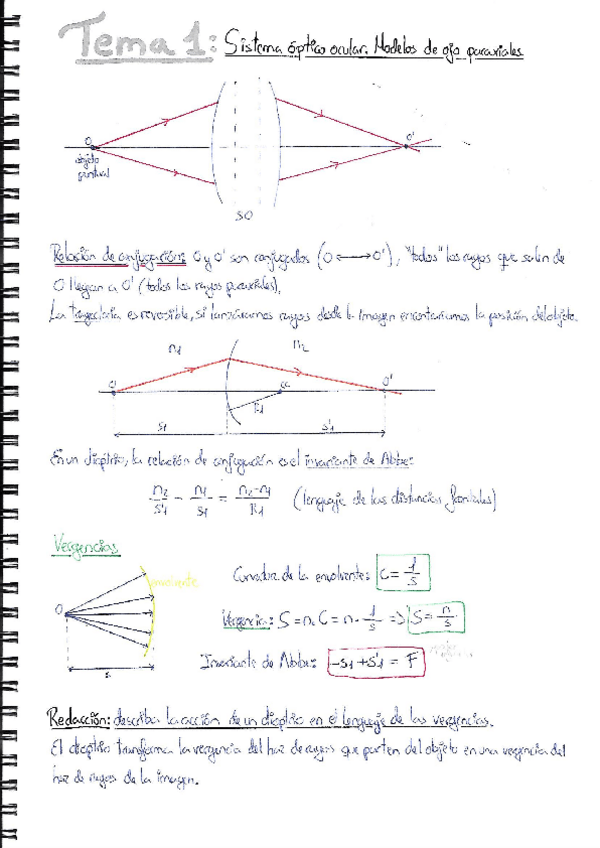 Tema 1: Sistema óptico ocular. Modelos de ojo paraxiales
O
objeto
puntual
O'
SO
Relación de conjugación: O y O' son conjugados (O ⟷ O'), "todos" los rayos que salen de
O llegan a O' (todos los rayos paraxiales).
La trayectoria es reversible, si lanzáramos rayos desde la imagen encontraríamos la posición del objeto.
n1 n2
O CC O'
R1
s1 s'1
En un dioptrio, la relación de conjugación es el invariante de Abbe:
n2/s'1 - n1/s1 = (n2-n1)/R1 (lenguaje de las distancias frontales)
Vergencias
O envolvente
s
Curvatura de la envolvente: C = 1/s
Vergencia: S = n·C = n·1/s => S = n/s
Invariante de Abbe: -S1 + S'1 = F
Redacción: describa la acción de un dioptrio en el lenguaje de las vergencias.
El dioptrio transforma la vergencia del haz de rayos que parten del objeto en una vergencia del
haz de rayos de la imagen.